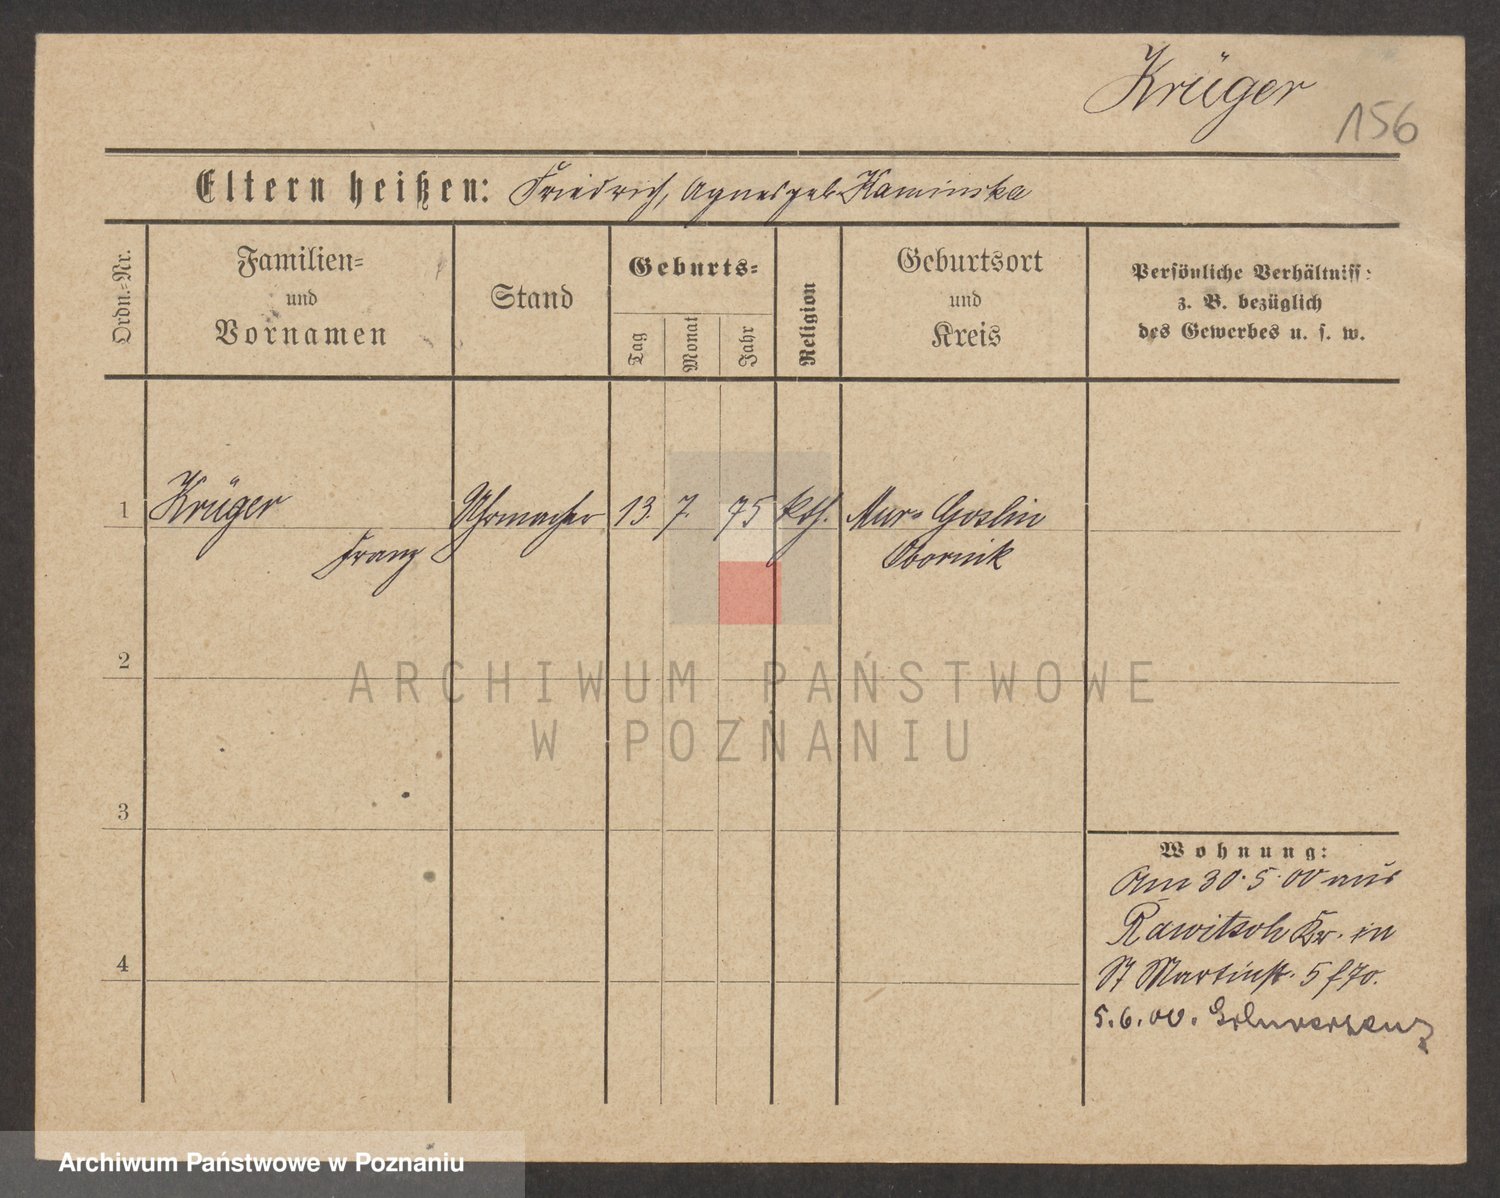 Krüger
156
Eltern heißen: Friedrich, Agnes geb Kaminska
Ordn.-Nr.
Familien-
und
Vornamen
Stand
Geburts-
Tag
Monat
Jahr
Religion
Geburtsort
und
Kreis
Persönliche Verhältniss:
z. B. bezüglich
des Gewerbes u. s. w.
1
Krüger
Franz
Uhrmacher
13. 7. 75
kth.
Mur. Goslin
Obornik
2
ARCHIWUM PAŃSTWOWE
W POZNANIU
3
Wohnung:
Am 30.5.00 aus
Rawitsch Kr. in
St Martinstr. 5
4
5.6.00.
Archiwum Państwowe w Poznaniu